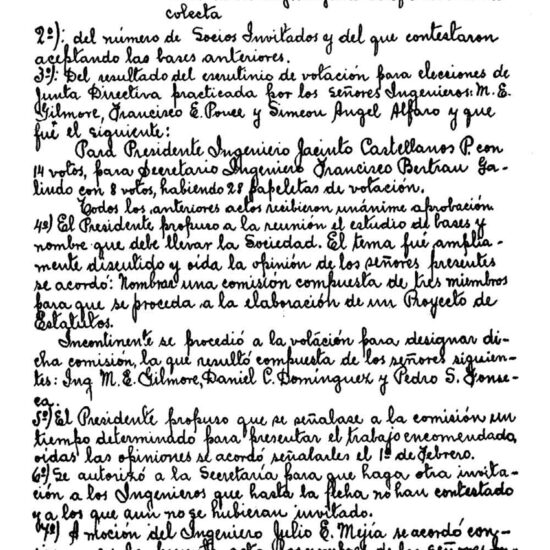 colecta
2º): del número de Socios Invitados y del que contestaron
aceptando las bases anteriores.
3º): Del resultado del escrutinio de votación para elecciones de
Junta Directiva practicada por los Señores Ingenieros: M. E.
Gilmore, Francisco E. Ponce y Simeon Angel Alfaro y que
fué el siguiente:
Para Presidente Ingeniero Jacinto Castellanos P. con
14 votos, para Secretario Ingeniero Francisco Bertrau Ga-
lindo con 8 votos, habiendo 28 papeletas de votación.
Todos los anteriores actos recibieron unánime aprobación
4º) El Presidente propuso a la reunión el estudio de bases y
nombre que debe llevar la Sociedad. El tema fué amplia-
mente discutido y oída la opinión de los señores presentes
se acordó: Nombrar una comisión compuesta de tres miembros
para que se proceda a la elaboración de un Proyecto de
Estatutos.
Incontinente se procedió a la votación para designar di-
cha comisión, la que resultó compuesta de los señores siguien-
tes: Ing M. E. Gilmore, Daniel C. Domínguez y Pedro S. Fonse-
ca.
5º) El Presidente propuso que se señalase a la comisión un
tiempo determinado para presentar el trabajo encomendado,
oídas las opiniones se acordó señalarles el 1º de Febrero.
6º) Se autorizó a la Secretaría para que haga otra invita-
ción a los Ingenieros que hasta la fecha no han contestado
y a los que aun no se hubieran invitado.
7º) A moción del Ingeniero Julio E. Mejía se acordó con-